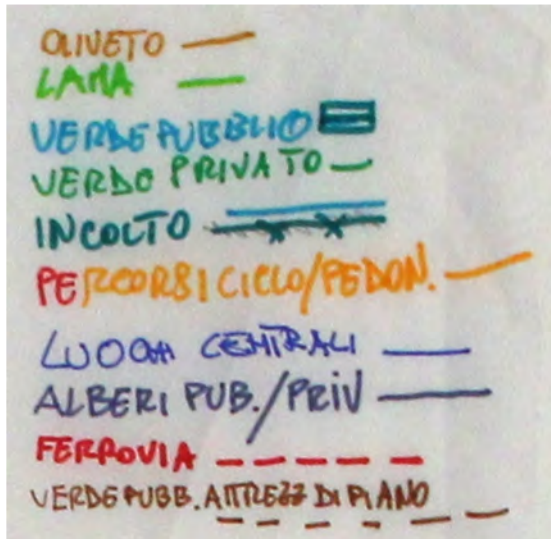 OLIVETO
LAMA
VERDE PUBBLICO
VERDE PRIVATO
INCOLTO
PERCORSI CICLO/PEDON.
LUOGHI CENTRALI
ALBERI PUB./PRIV
FERROVIA
VERDE PUBB. ATTREZZ DI PIANO